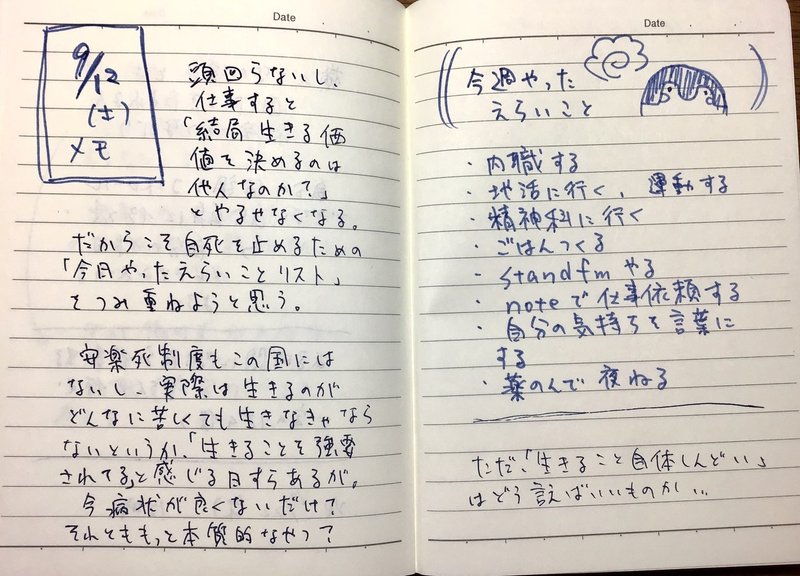 Date
9/12
(土)
メモ
頭回らないし、
仕事すると
「結局生きる価
値を決めるのは
他人なのか?」
とやるせなくなる。
だからこそ自死を止めるための
「今日やったえらいことリスト」
をつみ重ねようと思う。
安楽死制度もこの国には
ないし、実際は生きるのが
どんなに苦しくても生きなきゃなら
ないというか、「生きることを強要
されてる」と感じる日すらあるが。
今病状が良くないだけ?
それとももっと本質的なやつ?
Date
今週やった
えらいこと
・内職する
・地活に行く、運動する
・精神科に行く
・ごはんつくる
・standfmやる
・noteで仕事依頼する
・自分の気持ちを言葉に
する
・薬のんで夜ねる
ただ、「生きること自体しんどい」
はどう言えばいいものか…